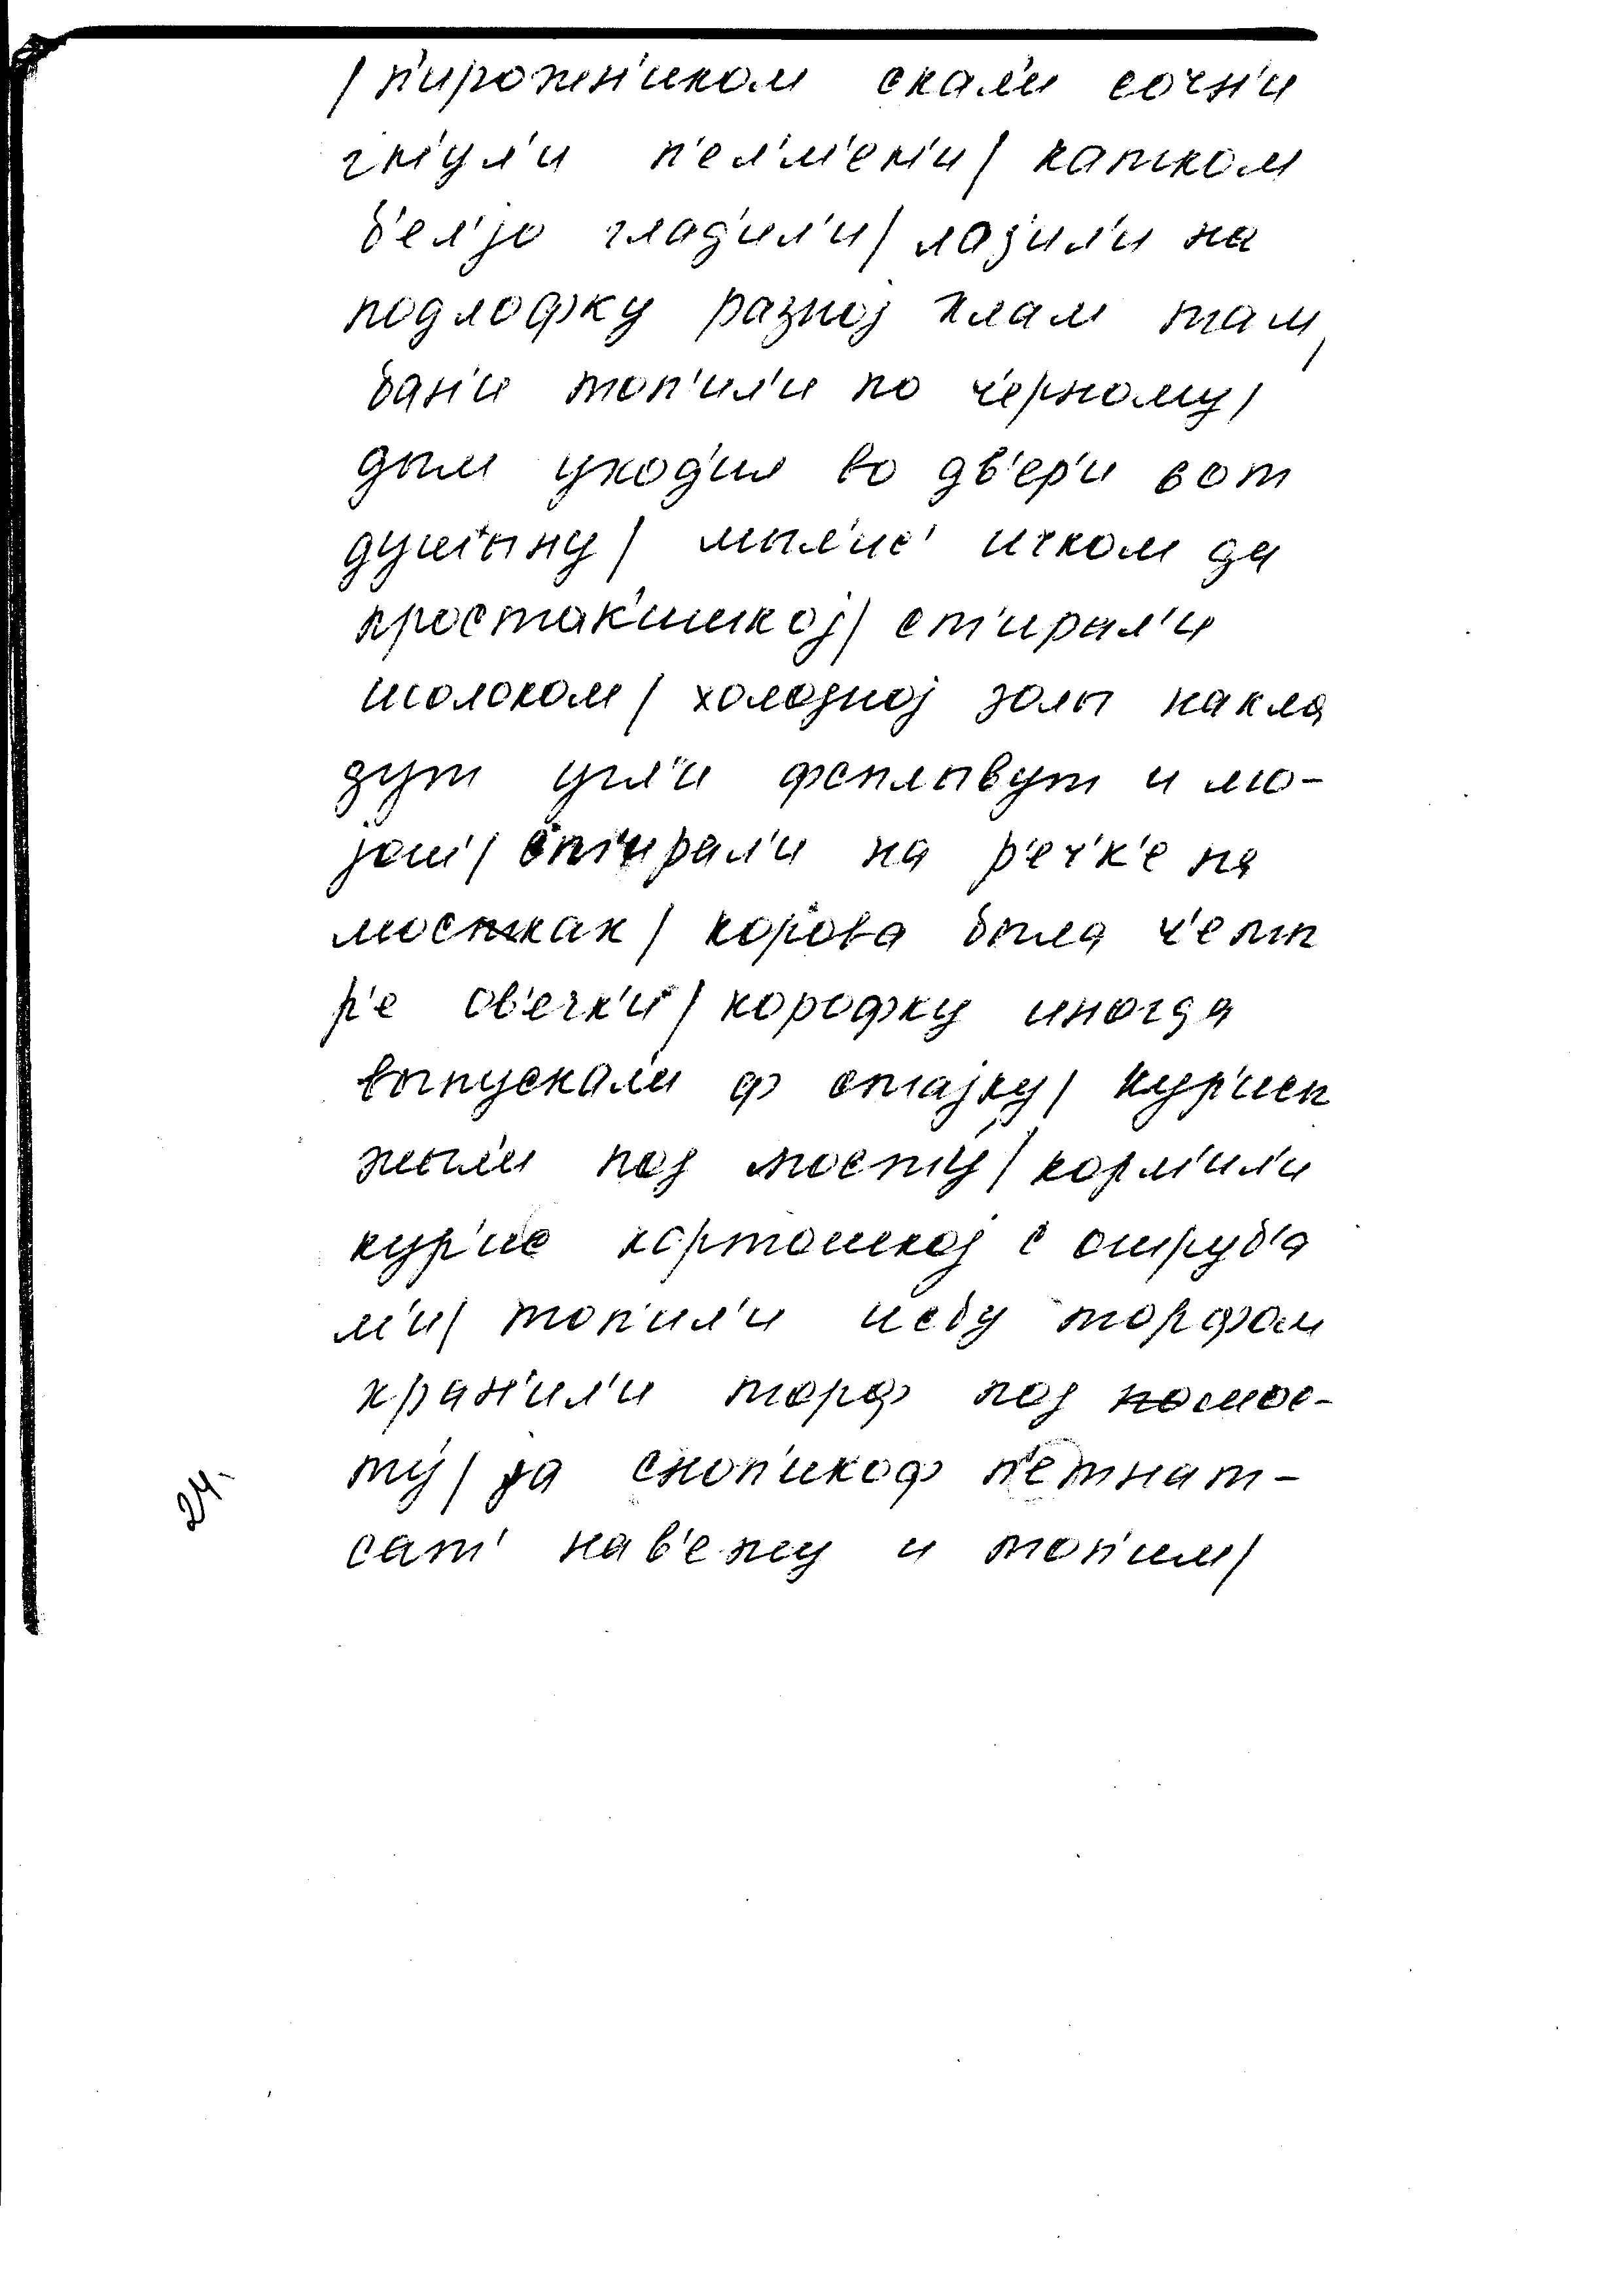 /п'ирожн'иком скал'и сочн'и
гн'ул'и п'ел'м'ен'и/ катком
б'ел'jо глад'ил'и/ лаз'ил'и на
подлофку разноj хлам там/
бан'и топ'ил'и по ч'ерному/
дым уход'ил во дв'ер'и вот
душыну/ мыл'ис' ичком да
простак'ишкоj/ ст'ирал'и
шолоком/ холодноj золы накла
дут угл'и фсплывут и мо-
jош/ ст'ирал'и на р'еч'к'е на
мостках/ корова была ч'еты
р'е ов'ечк'и/ корофку иногда
выпускал'и ф стаjку/ кур'исы
жыл'и под мосту/ корм'ил'и
кур'ис картошкоj с отруб'а
м'и/ топ'ил'и избу торфом
хран'ил'и торф под помос-
ту/ jа сноп'икоф п'етнат-
сат' нав'ежу и топ'им/
24.